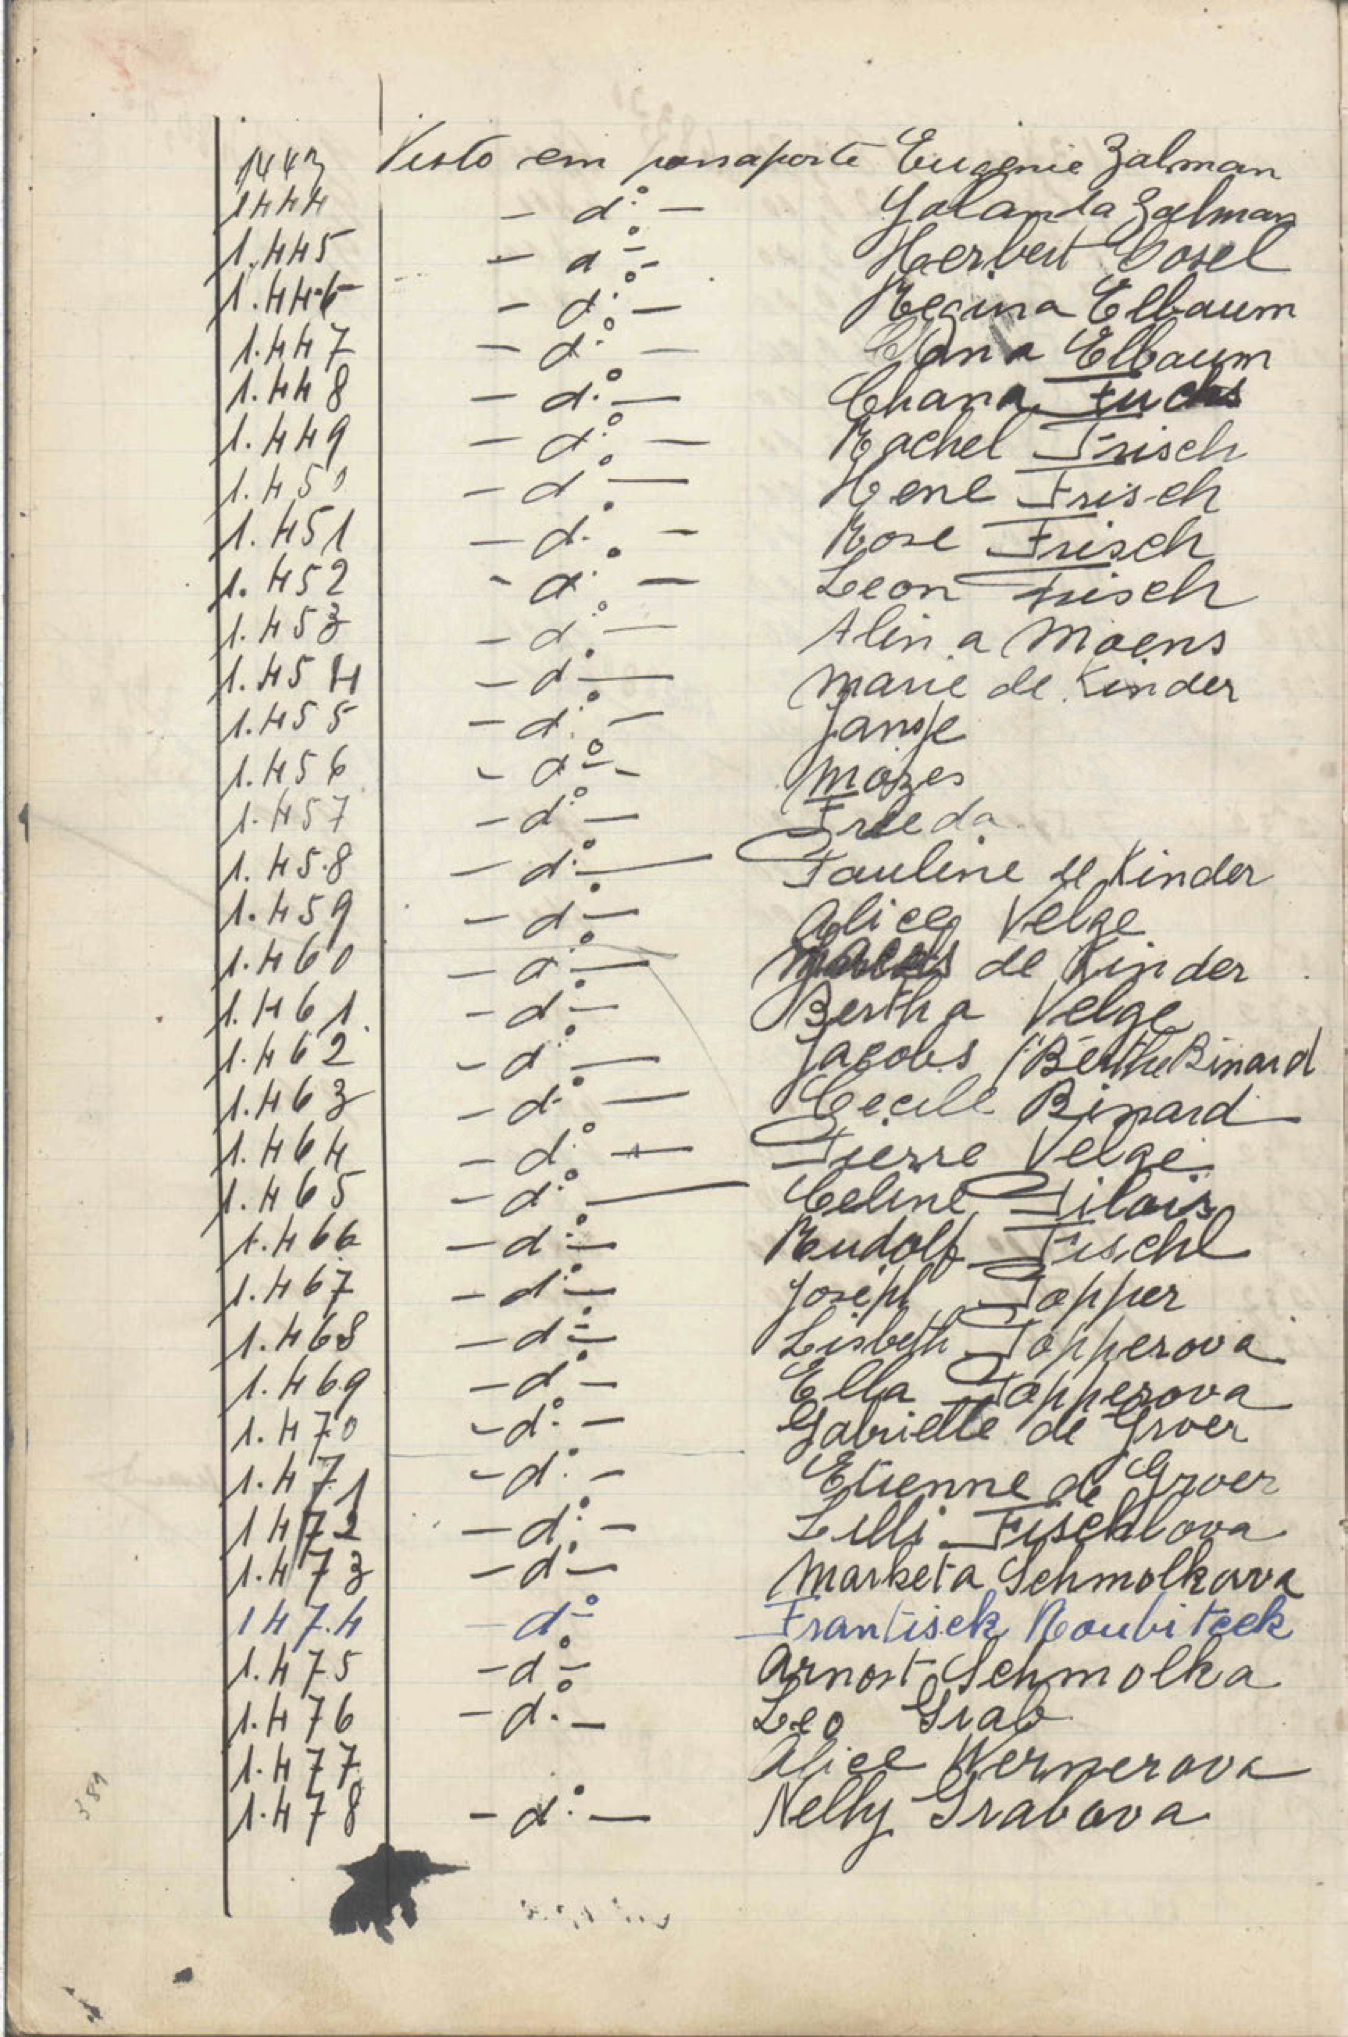 1443 Visto em passaporte Eugenie Zalman
1444 — dº — Yolanda Zalman
1.445 — dº — Herbert Cosel
1.446 — dº — Regina Elbaum
1.447 — dº — Elbaum
1.448 — dº — Chana Fuchs
1.449 — dº — Rachel Frisch
1.450 — dº — Hene Frisch
1.451 — dº — Rose Frisch
1.452 — dº — Leon Frisch
1.453 — dº — Alina Moens
1.454 — dº — Marie de Kinder
1.455 — dº — Jansje
1.456 — dº — Mozes
1.457 — dº — Freeda
1.458 — dº — Pauline de Kinder
1.459 — dº — Alice Velge
1.460 — dº — de Kinder
1.461 — dº — Bertha Velge
1.462 — dº — Jacobs Berthe Binard
1.463 — dº — Cecile Binard
1.464 — dº — Pierre Velge
1.465 — dº — Celine
1.466 — dº — Rudolf Fischl
1.467 — dº — Joseph Popper
1.468 — dº — Lisbeth Popperova
1.469 — dº — Ella Popperova
1.470 — dº — Gabrielle de Groer
1.471 — dº — Etienne de Groer
1472 — dº — Lilli Fischlova
1.473 — dº — Marketa Schmolkova
1474 — dº Frantisek Roubitcek
1.475 — dº — Arnost Schmolka
1.476 — dº — Leo Grab
1.477 Alice Wernerova
1.478 — dº — Nelly Grabova
389